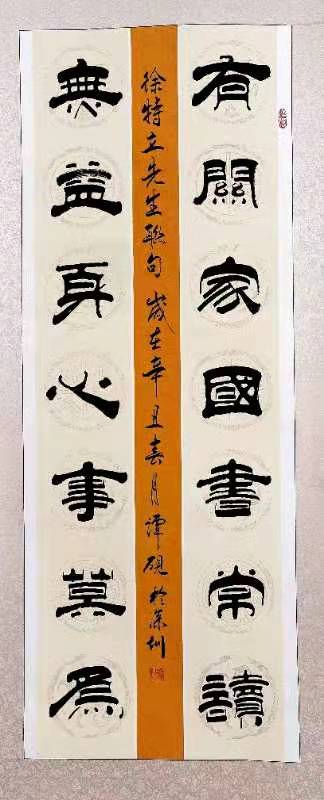 有關家國書常讀
無益身心事莫為
徐特立先生聯句 歲在辛丑春月譚硯於深圳